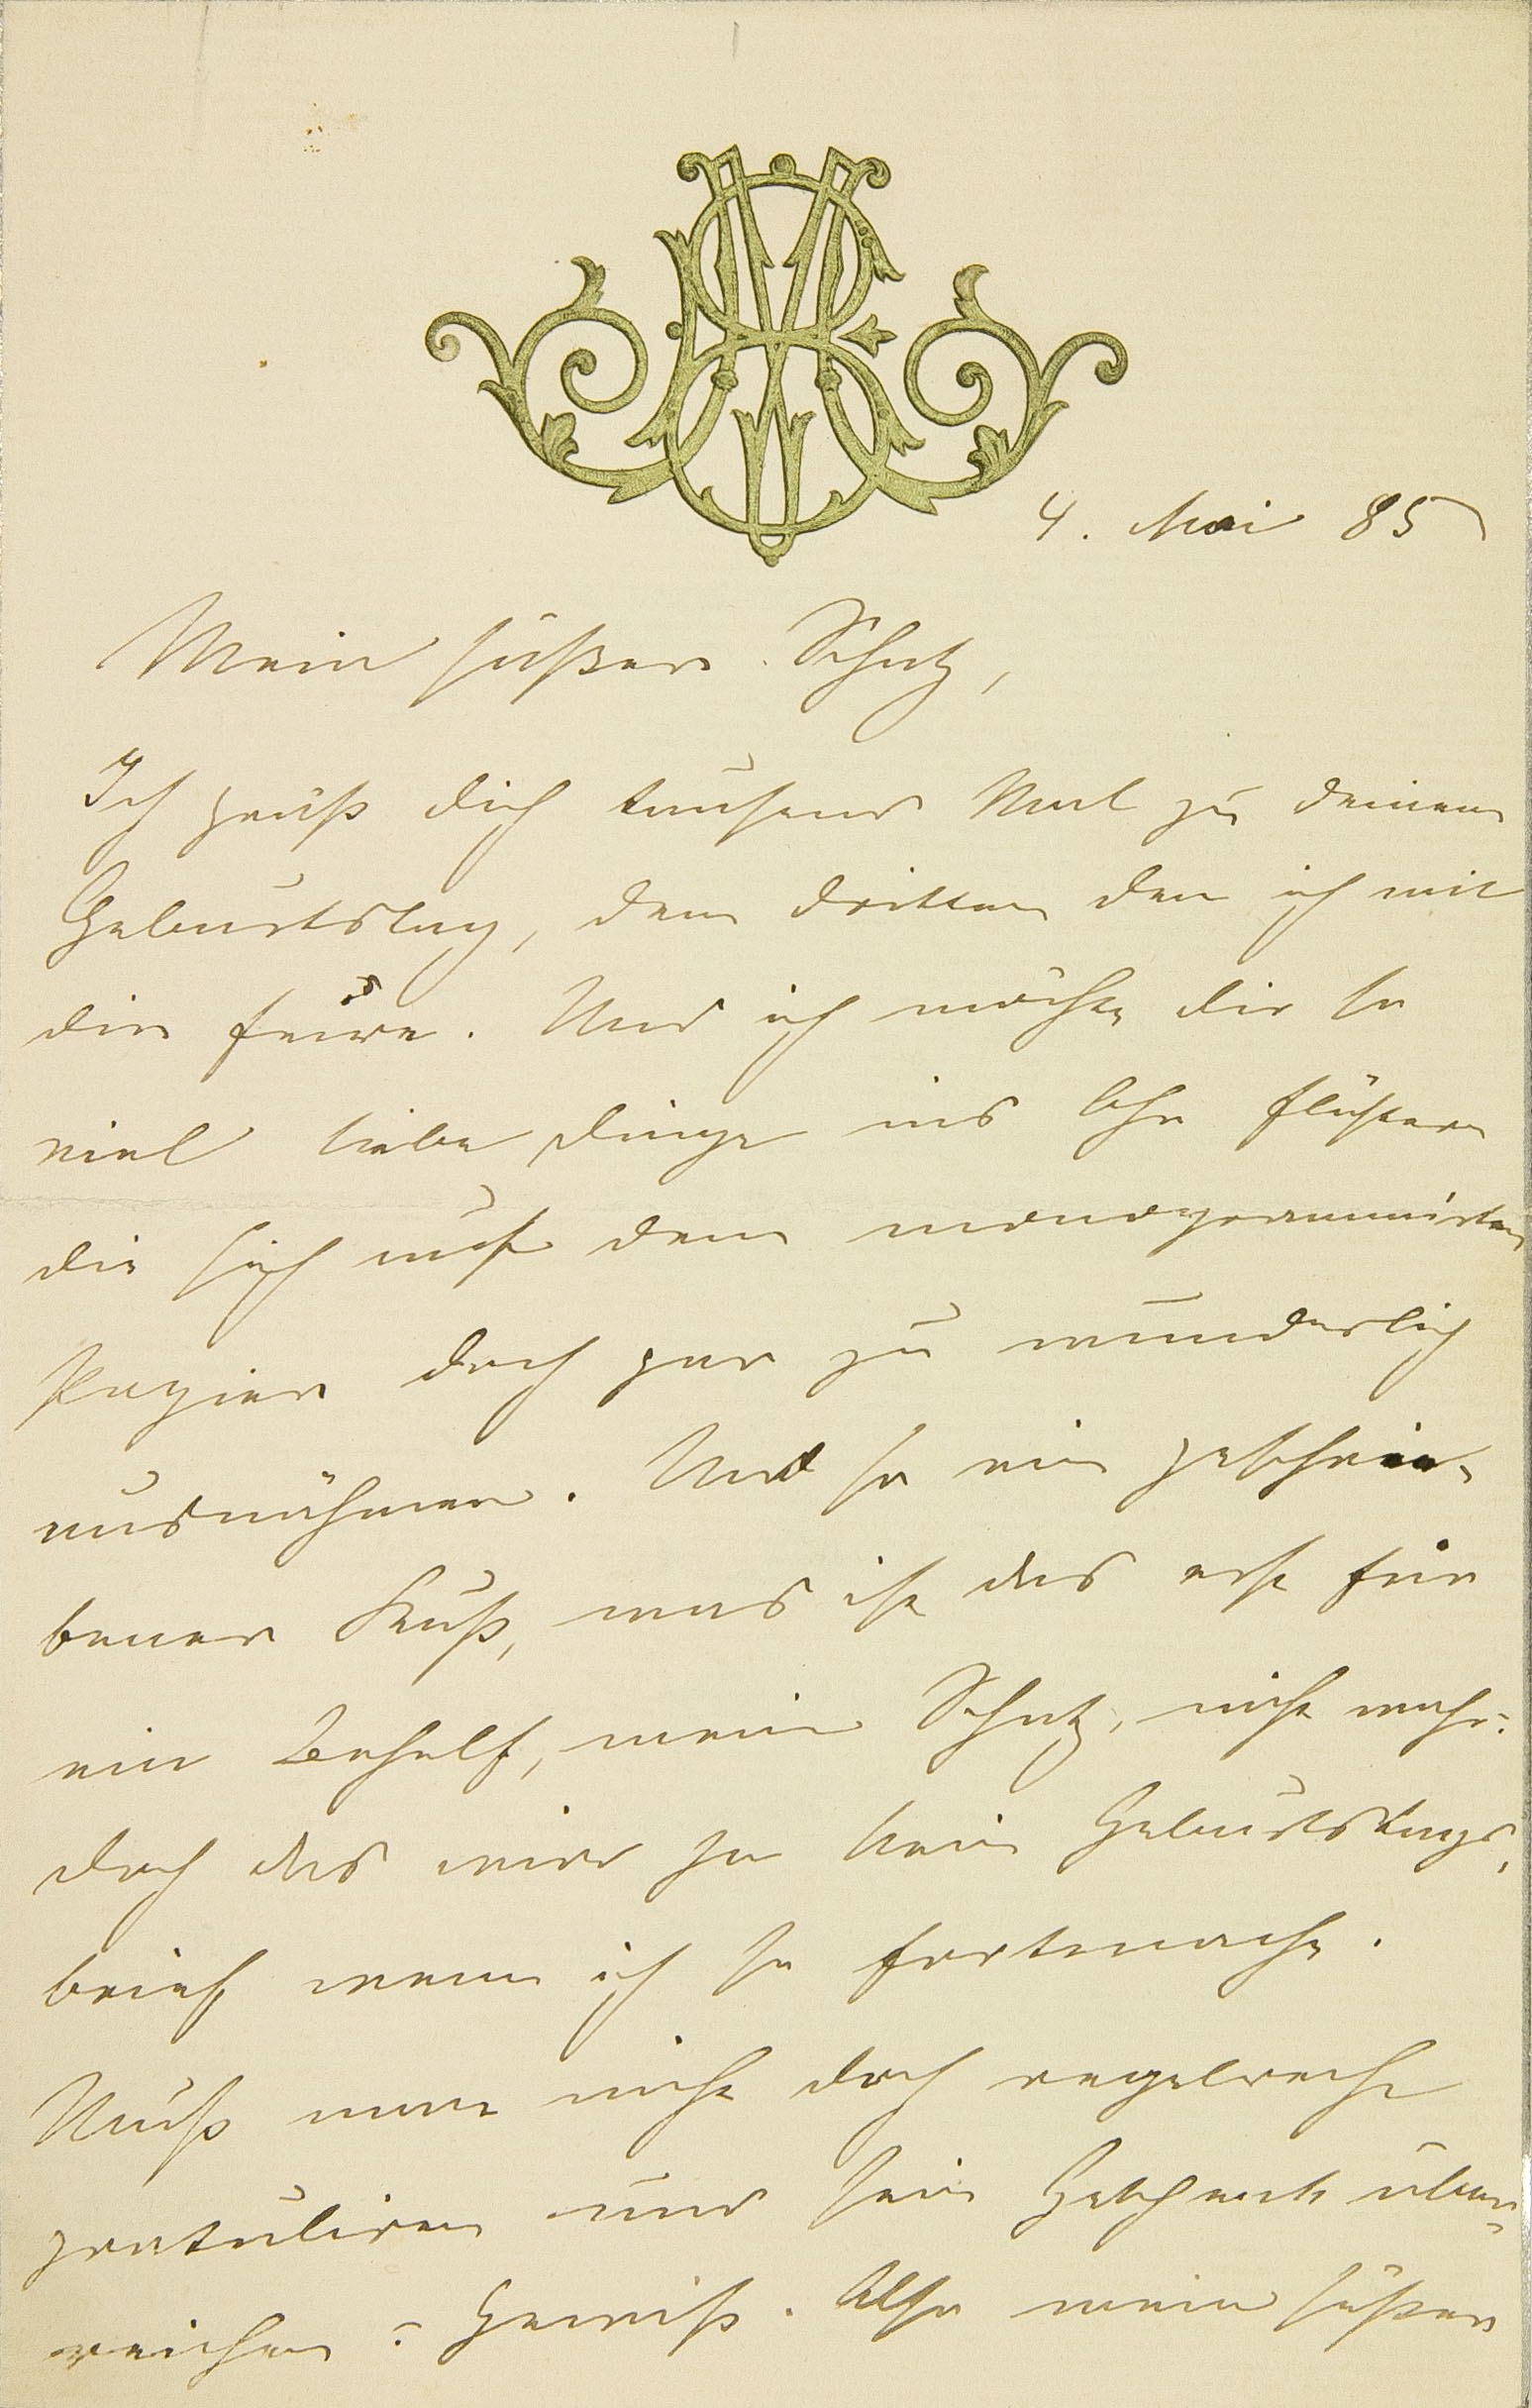 4. Mai 85
Mein süßer Schatz,
Ich grüß dich tausend Mal zu deinem
Geburtstag, dem dritten den ich mit
dir feire. Und ich möchte dir so
viel liebe Dinge ins Ohr flüstern
die sich auf dem monogrammirten
Papier doch gar zu wunderlich
ausnähmen. Und so ein geschrie-
bener Kuß, was ist das erst für
ein Behelf, mein Schatz, nicht wahr?
doch das wird ja kein Geburtstags-
brief wenn ich so fortmache.
Muß man nicht doch regelrecht
gratuliren und sein Geschenk über-
reichen? Gewiß. Also mein süßer